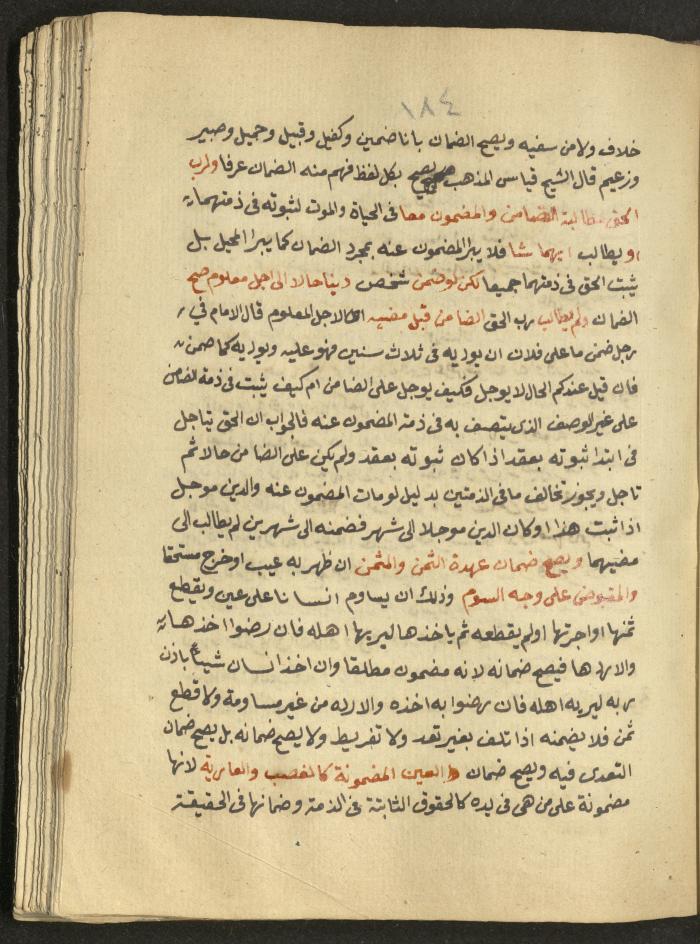 ١٨٤
خلاف ولا من سفيه ويصح الضمان بانا ضمين وكفيل وقبيل وحميل وصبير
وزعيم قال الشيخ قياس المذهب يصح بكل لفظ فهم منه الضمان عرفا ولرب
الحق مطالبة الضامن والمضمون معا في الحياة والموت لثبوته في ذمتهما
او يطالب ايهما شا فلا يبرا المضمون عنه بمجرد الضمان كما يبرا المحيل بل
يثبت الحق في ذمتهما جميعا لكن لو ضمن شخص دينا حالا الى اجل معلوم صح
الضمان ولم يطالب رب الحق الضامن قبل مضيه الاجل المعلوم قال الامام في
رجل ضمن ما على فلان ان يوديه في ثلاث سنين فهو عليه ويوديه كما ضمن
فان قيل عندكم الحال لا يوجل فكيف يوجل على الضامن ام كيف يثبت في ذمة الضامن
على غير الوصف الذي يتصف به في ذمة المضمون عنه فالجواب ان الحق يتاجل
في ابتدا ثبوته بعقد اذا كان ثبوته بعقد ولم يكن على الضامن حالا ثم
تاجل ويجوز تخالف ما في الذمتين بدليل لو مات المضمون عنه والدين موجل
اذا ثبت هذا وكان الدين موجلا الى شهر فضمنه الى شهرين لم يطالب الى
مضيهما ويصح ضمان عهدة الثمن والمثمن ان ظهر به عيب او خرج مستحقا
والمقبوض على وجه السوم وذلك ان يساوم انسانا على عين ويقطع
ثمنها او اجرتها او لم يقطعه ثم ياخذها ليريها اهله فان رضوا اخذها
والا ردها فيصح ضمانه لانه مضمون مطلقا وان اخذ انسان شيئا باذن
ربه ليريه اهله فان رضوا به اخذه والا رده من غير مساومة ولا قطع
ثمن فلا يضمنه اذا تلف بغير تعد ولا تفريط ولا يصح ضمانه بل يصح ضمان
التعدى فيه ويصح ضمان العين المضمونة كالغصب والعارية لانها
مضمونة على من هي في يده كالحقوق الثابتة في الذمة وضمانها في الحقيقة